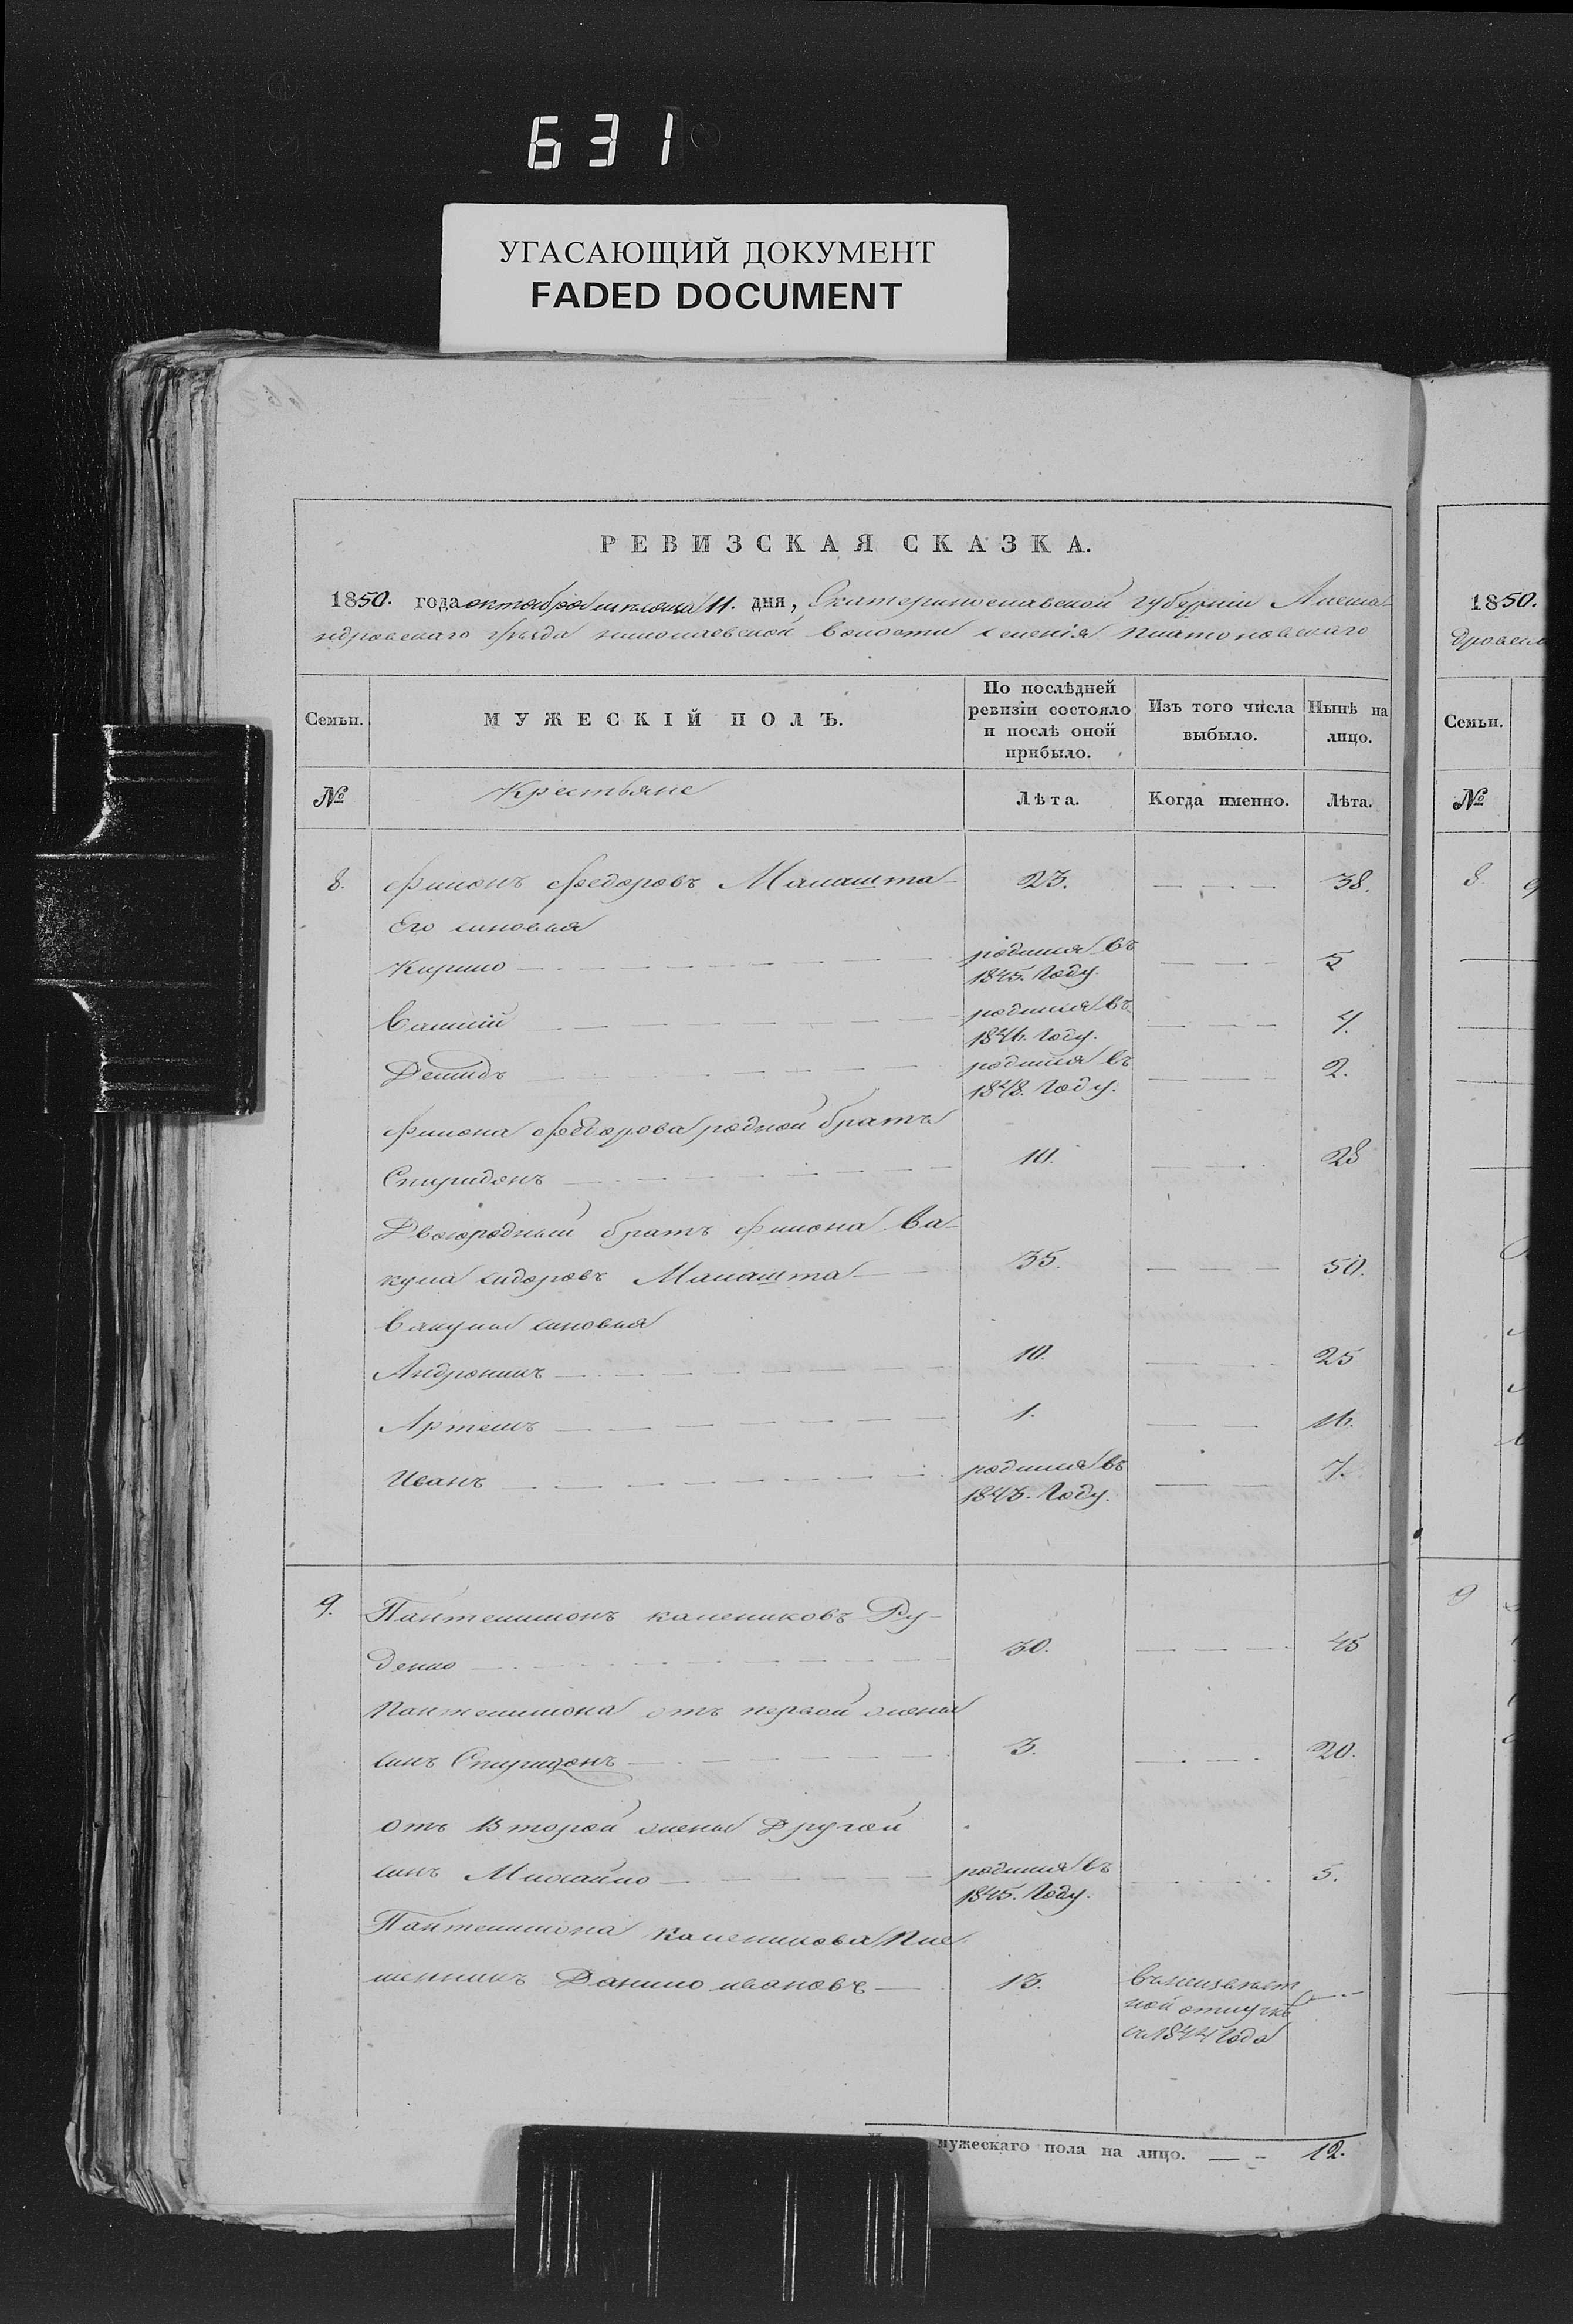 631
УГАСАЮЩИЙ ДОКУМЕНТ
FADED DOCUMENT
РЕВИЗСКАЯ СКАЗКА.
1850. года октября месяца 11. дня, Екатеринославской губернии Алекса-
ндровскаго уѣзда николаевской волости селенія платоновскаго
Семьи.
МУЖЕСКІЙ ПОЛЪ.
По послѣдней ревизіи состояло и послѣ оной прибыло.
Изъ того числа выбыло.
Нынѣ на лицо.
№
Крестьяне
Лѣта.
Когда именно.
Лѣта.
8. филонъ федоровъ Малашта 23. 38.
Его синовья
Кирило родился въ 1845. Году. 5
Василій родился въ 1846. Году. 4.
Демидъ родился въ 1848. Году. 2.
филона федорова родной братъ
Спиридонъ 10. 28
Двоюродный братъ филона Ва-
кула сидоровъ Малашта 35. 50.
Вакулы синовья
Андроникъ 10. 25
Артемъ 1. 16.
Иванъ родился въ 1843. Году. 7.
9. Пантелимонъ калениковъ Ру-
денко 30. 45
Пантелимона отъ первой жены
синъ Спиридонъ 3. 20.
отъ Второй жены Другой
синъ Михайло родился въ 1845. Году. 5.
Пантелимона Каленикова Пле
менникъ Данило ивановъ 13.
ной отлучкѣ
съ 1844 Года
мужескаго пола на лицо. 12.
1850.
Семьи.
№
8
9